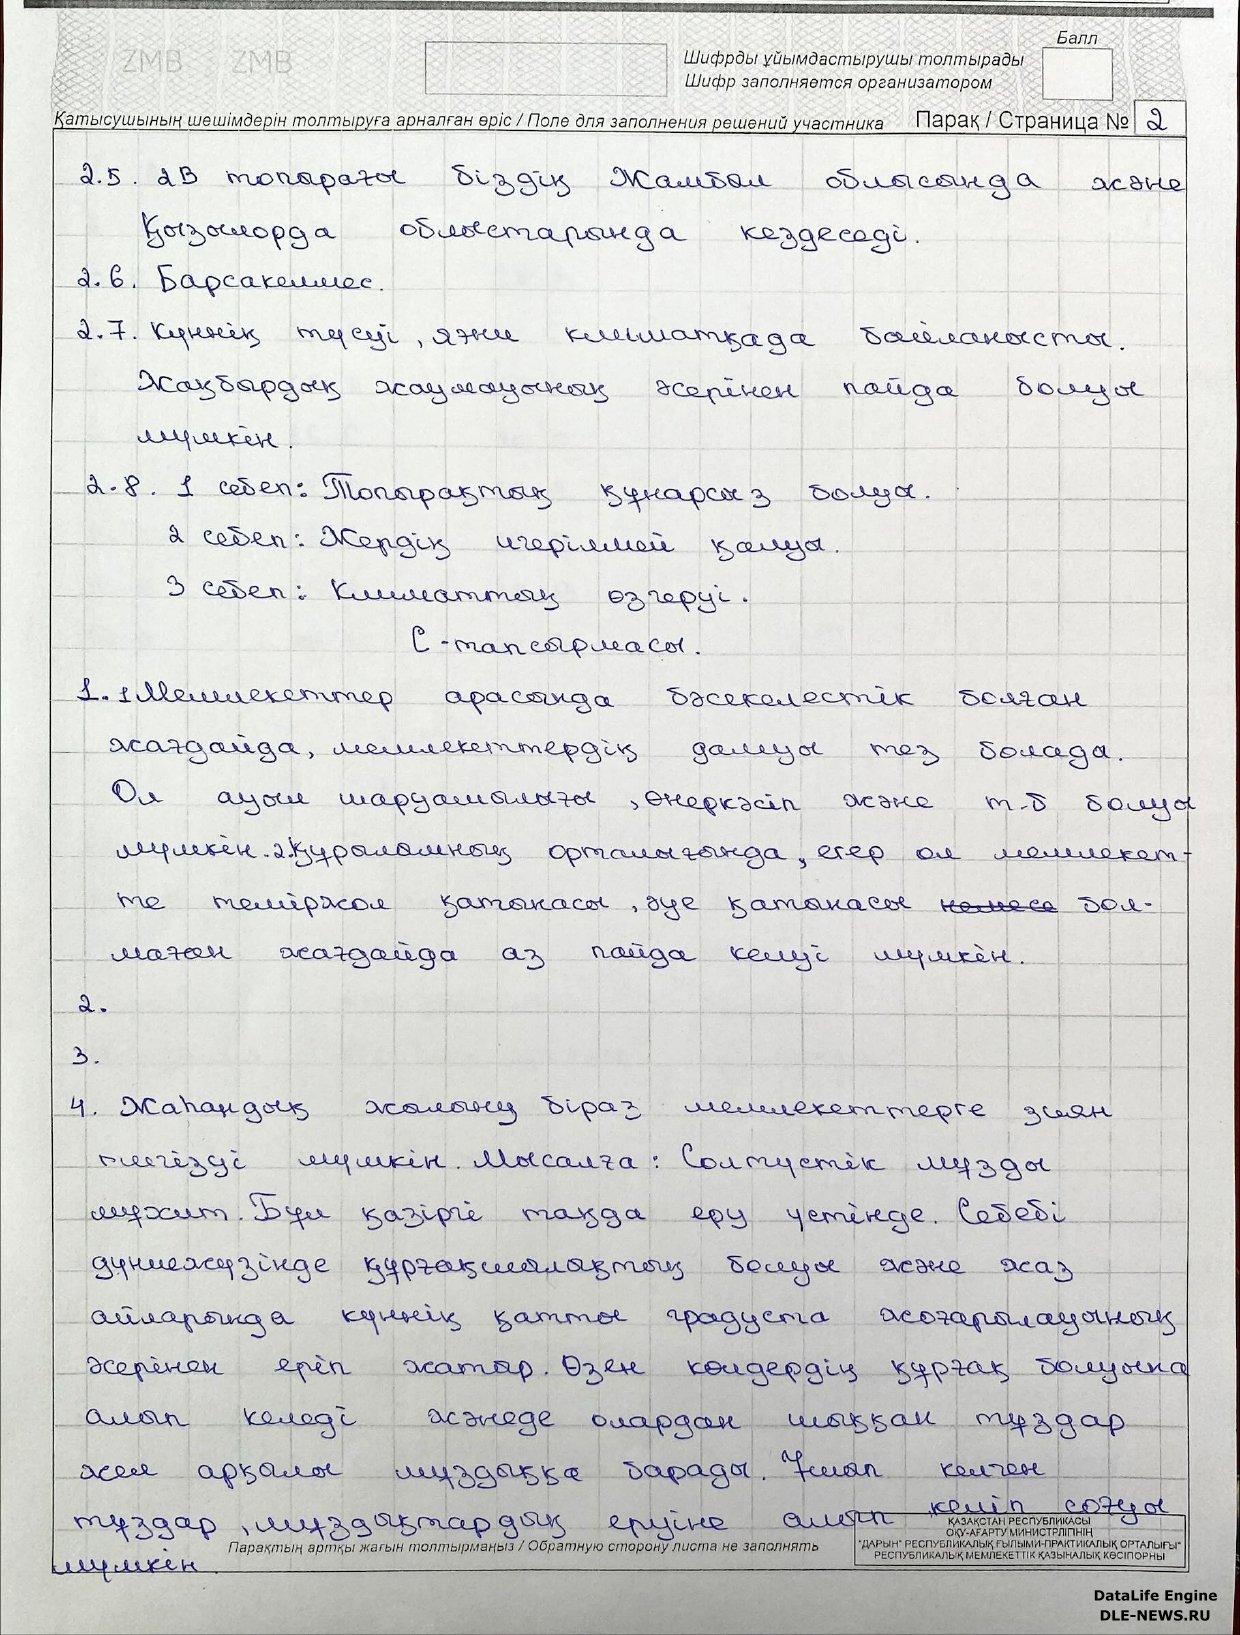 ZMB ZMB
Балл
Шифрды ұйымдастырушы толтырады
Шифр заполняется организатором
Қатысушының шешімдерін толтыруға арналған өріс / Поле для заполнения решений участника Парақ / Страница № 2
2.5. 2В топырағы біздің Жамбыл облысында және
Қызылорда облыстарында кездеседі.
2.6. Барсакелмес.
2.7. Күннің түсуі, яғни климатқада байланысты.
Жаңбырдың жаумауының әсерінен пайда болуы
мүмкін.
2.8. 1 себеп: Топырақтың құнарсыз болуы.
2 себеп: Жердің игерілмей қалуы.
3 себеп: Климаттың өзгеруі.
С-тапсырмасы.
1. 1 Мемлекеттер арасында бәсекелестік болған
жағдайда, мемлекеттердің дамуы тез болада.
Ол ауыл шаруашылығы, өнеркәсіп және т-б болуы
мүмкін. 2. Құрыламның орталығында, егер ол мемлекет-
те теміржол қатынасы, әуе қатынасы немесе бол-
маған жағдайда аз пайда келуі мүмкін.
2.
3.
4. Жаһандық жылыну біраз мемлекеттерге зиян
тигізуі мүмкін. Мысалға: Солтүстік мұзды
мұхит. Бұл қазіргі таңда еру үстінде. Себебі
дүниежүзінде құрғақшылықтың болуы және жаз
айларында күннің қатты градуста жоғарылауының
әсерінен еріп жатыр. Өзен көлдердің құрғақ болуына
алып келеді жәнеде олардан шыққан тұздар
жел арқылы мұздыққа барады. Ұшып келген
тұздар, мұздықтардың еруіне алып келіп соғуы
мүмкін.
Парақтың артқы жағын толтырмаңыз / Обратную сторону листа не заполнять
ҚАЗАҚСТАН РЕСПУБЛИКАСЫ
ОҚУ-АҒАРТУ МИНИСТРЛІГІНІҢ
"ДАРЫН" РЕСПУБЛИКАЛЫҚ ҒЫЛЫМИ-ПРАКТИКАЛЫҚ ОРТАЛЫҒЫ"
РЕСПУБЛИКАЛЫҚ МЕМЛЕКЕТТІК ҚАЗЫНАЛЫҚ КӘСІПОРНЫ
DataLife Engine
DLE-NEWS.RU